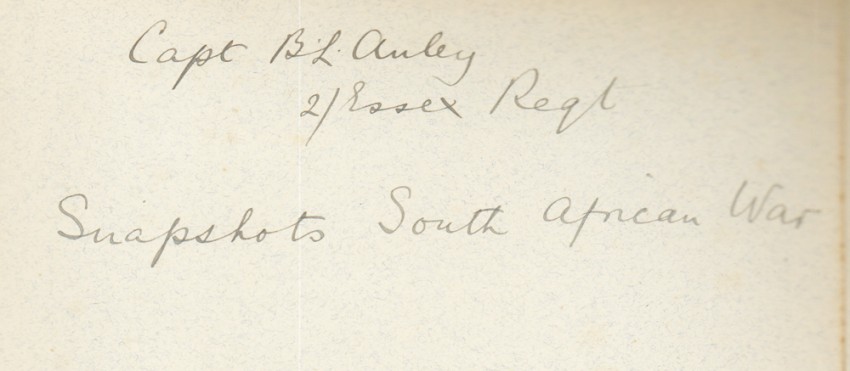 Capt B.L. Anley
2/Essex Regt
Snapshots South African War